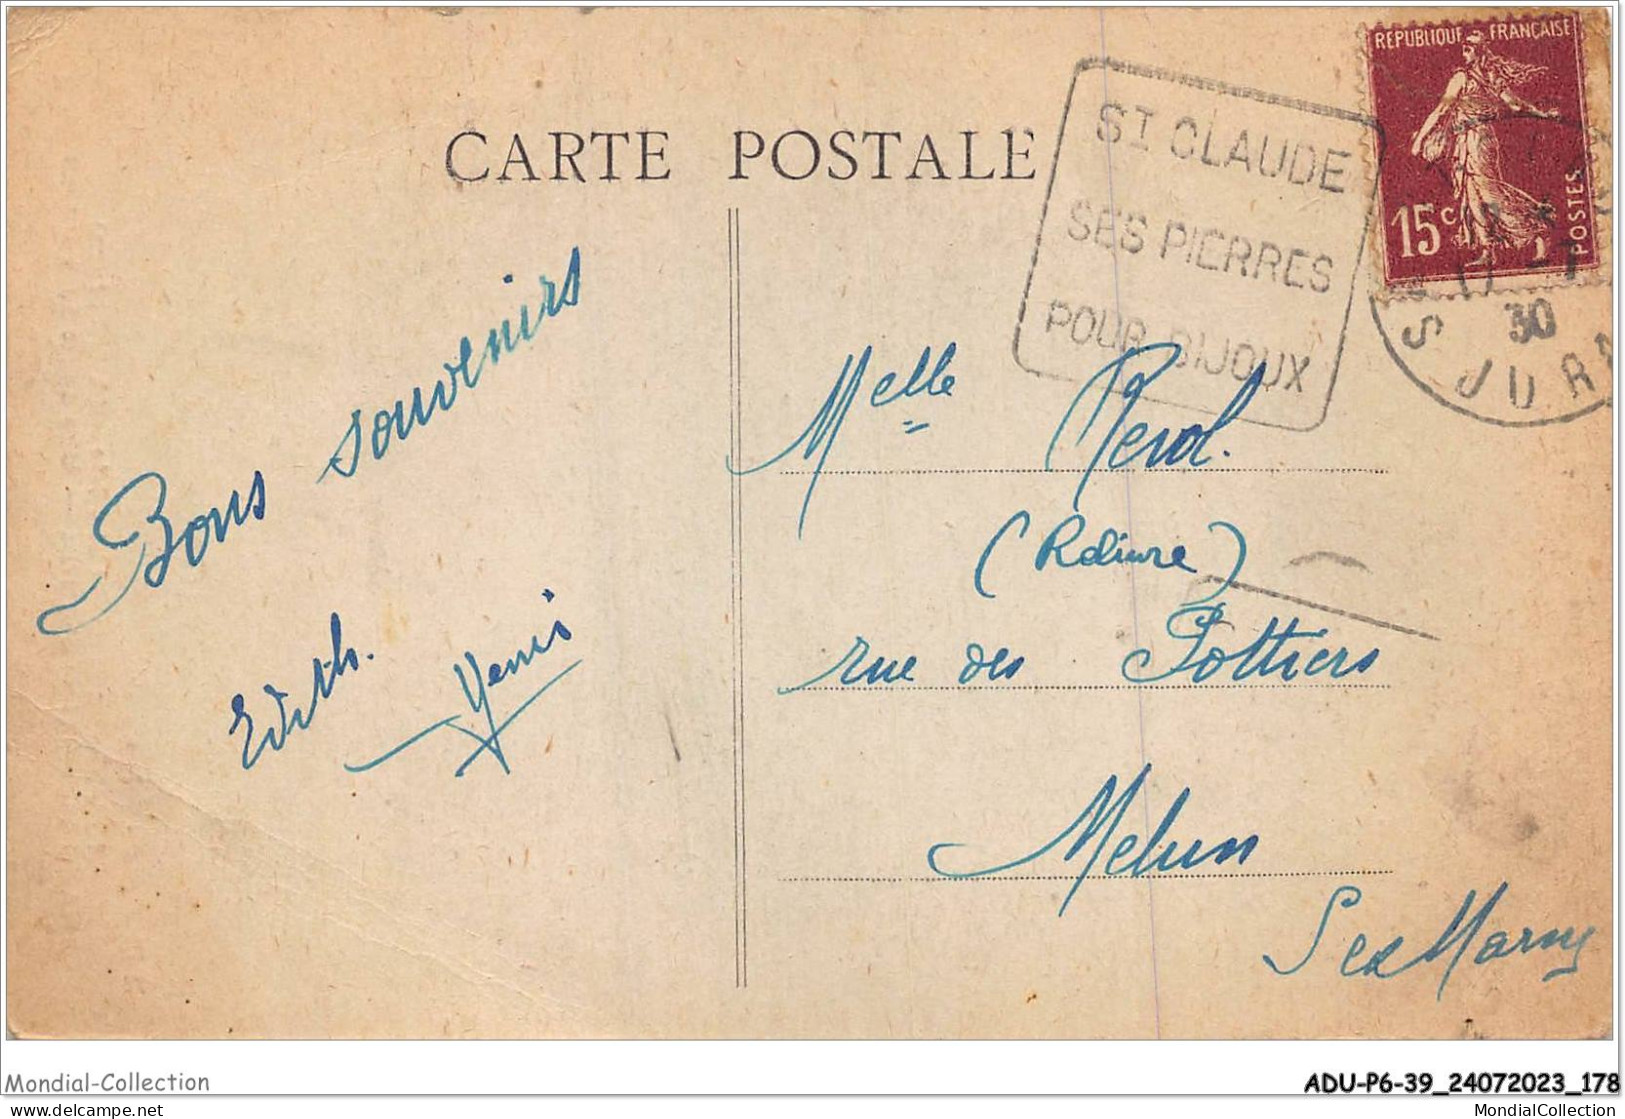 CARTE POSTALE
REPUBLIQUE FRANÇAISE
15c
POSTES
ST CLAUDE
SES PIERRES
POUR BIJOUX
30
S JURA
Bons souvenirs
Edith.
Melle
rue des Pottiers
Melun
S et Marne
Mondial-Collection
ADU-P6-39_24072023_178
www.delcampe.net
MondialCollection